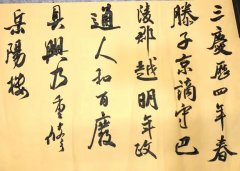 三慶曆四年春
滕子京謫守巴
陵郡越明年政
通人和百廢
具興乃重修
岳陽樓